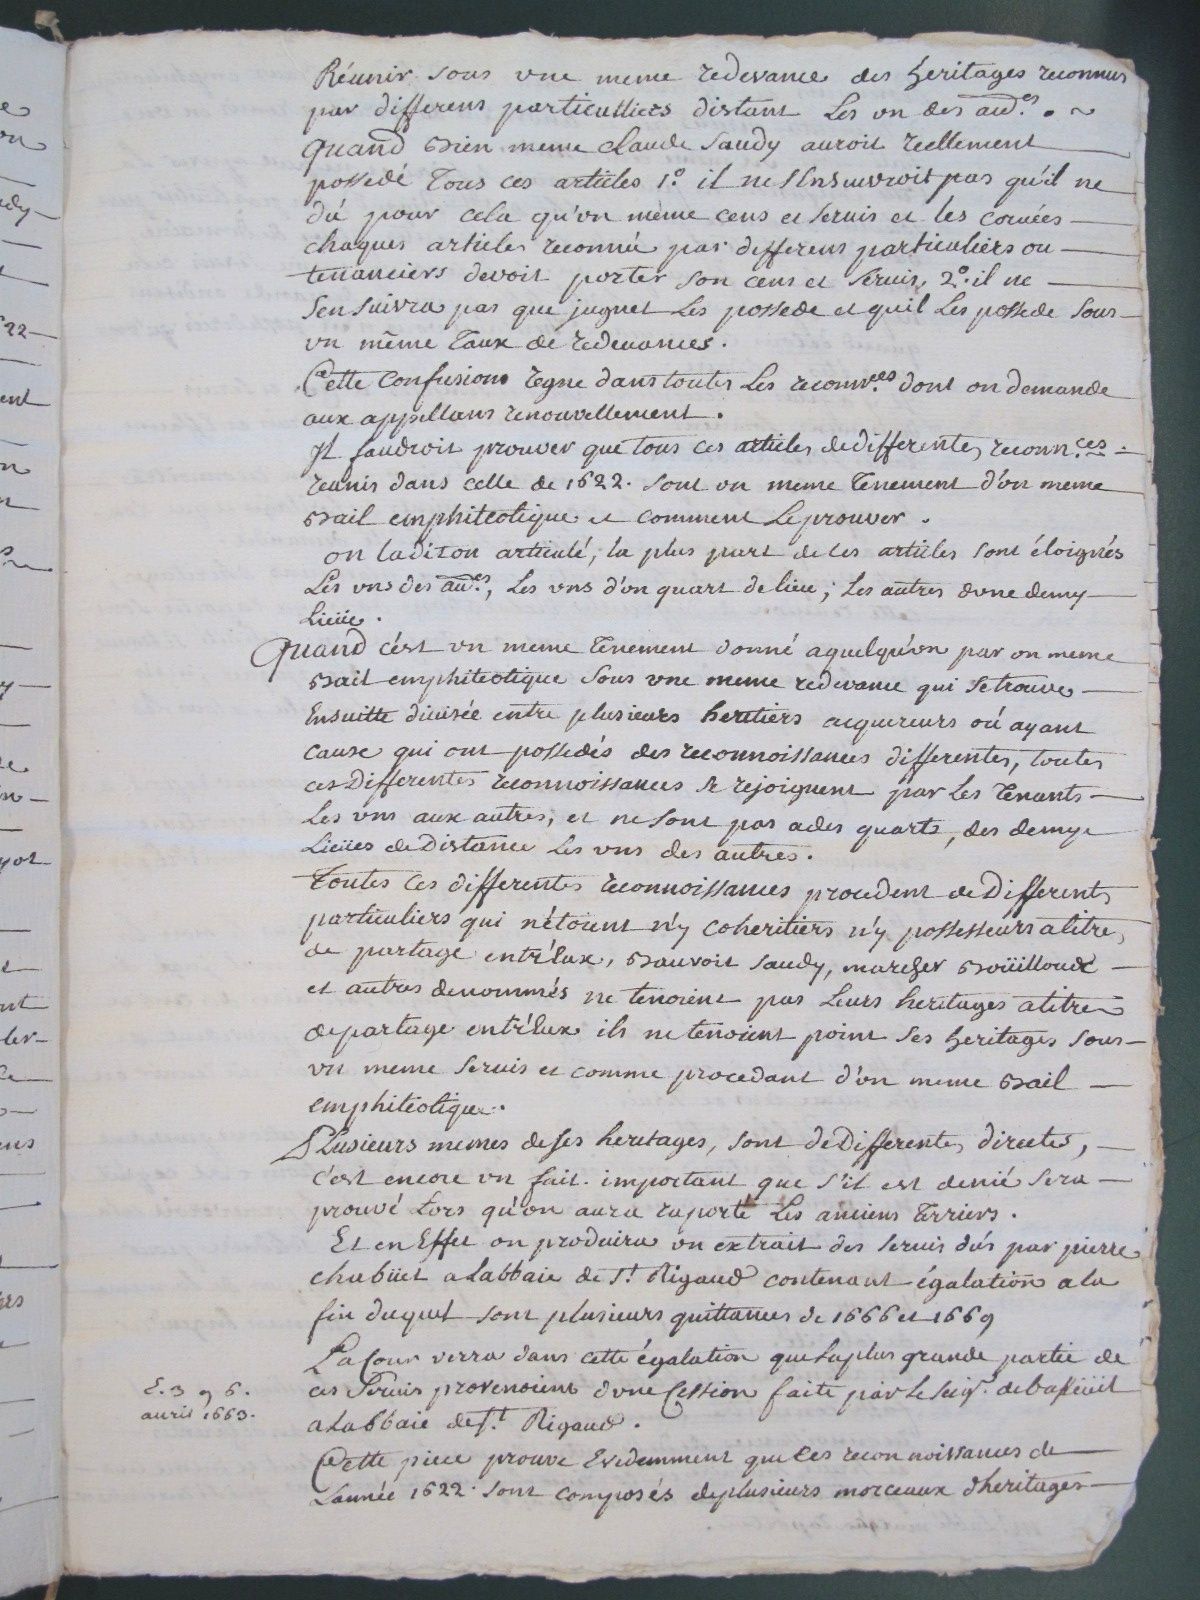 Réunir sous une meme redevance des heritages reconnus
par differens particulliers distant les un des au.es . ~
Quand bien meme Claude Saudy auroit reellement
possedé tous ces articles 1.o il ne s'ensuivroit pas qu'il ne
dû pour cela qu'un même cens et servis et les corvées
chaques articles reconnu par differens particuliers ou
tenanciers devoit porter son cens et servis, 2.o il ne
s'en suivra pas que jugnet les possede et quil les possede sous
un même taux de redevances.
Cette confusion regne dans toutes les reconn.ces dont on demande
aux appellans renouvellement.
Il faudroit prouver que tous ces articles de differentes reconn.ces
reunis dans celle de 1622. sont un meme tenement d'un meme
bail emphiteotique et comment le prouver.
on la dit on articulé, la plus part de ces articles sont éloignés
les uns des au.es, les uns d'un quart de lieue; les autres dune demy
lieüe.
Quand c'est un meme tenement donné a quelqu'un par un meme
bail emphiteotique sous une meme redevance qui se trouve
ensuitte divisée entre plusieurs heritiers acquereurs où ayant
cause qui ont possedés des reconnoissances differentes, toutes
ces differentes reconnoissances se rejoignent par les tenants
les uns aux autres, et ne sont pas a des quarts, des demye
lieües de distance les uns des autres.
Toutes ces differentes reconnoissances procedent de differents
particuliers qui n'étoient n'y coheritiers n'y possesseurs a titre
de partage entr'eux, sauvoir Saudy, marcher boüilloux
et autres denommés ne tenoient pas leurs heritages a titre
de partage entr'eux ils ne tenoient point ses heritages sous
un meme servis et comme procedant d'un meme bail
emphiteotique.
Plusieurs memes de ses heritages, sont de differentes directes,
c'est encore un fait important que s'il est denié sera
prouvé lors qu'on aura raporté les anciens terriers.
Et en effet on produira un extrait des servis dus par pierre
chabüet a labbaie de S.t Rigaud contenant égalation a la
fin duquel sont plusieurs quittances de 1666 et 1669
La Cour verra dans cette égalation que la plus grande partie de
ces servis provenoient d'une cession faite par le seig.r de
a labbaie de S.t Rigaud.
Cette piece prouve evidemment que les reconnoissances de
l'année 1622. sont composés de plusieurs morceaux d'heritages
avril 1663.